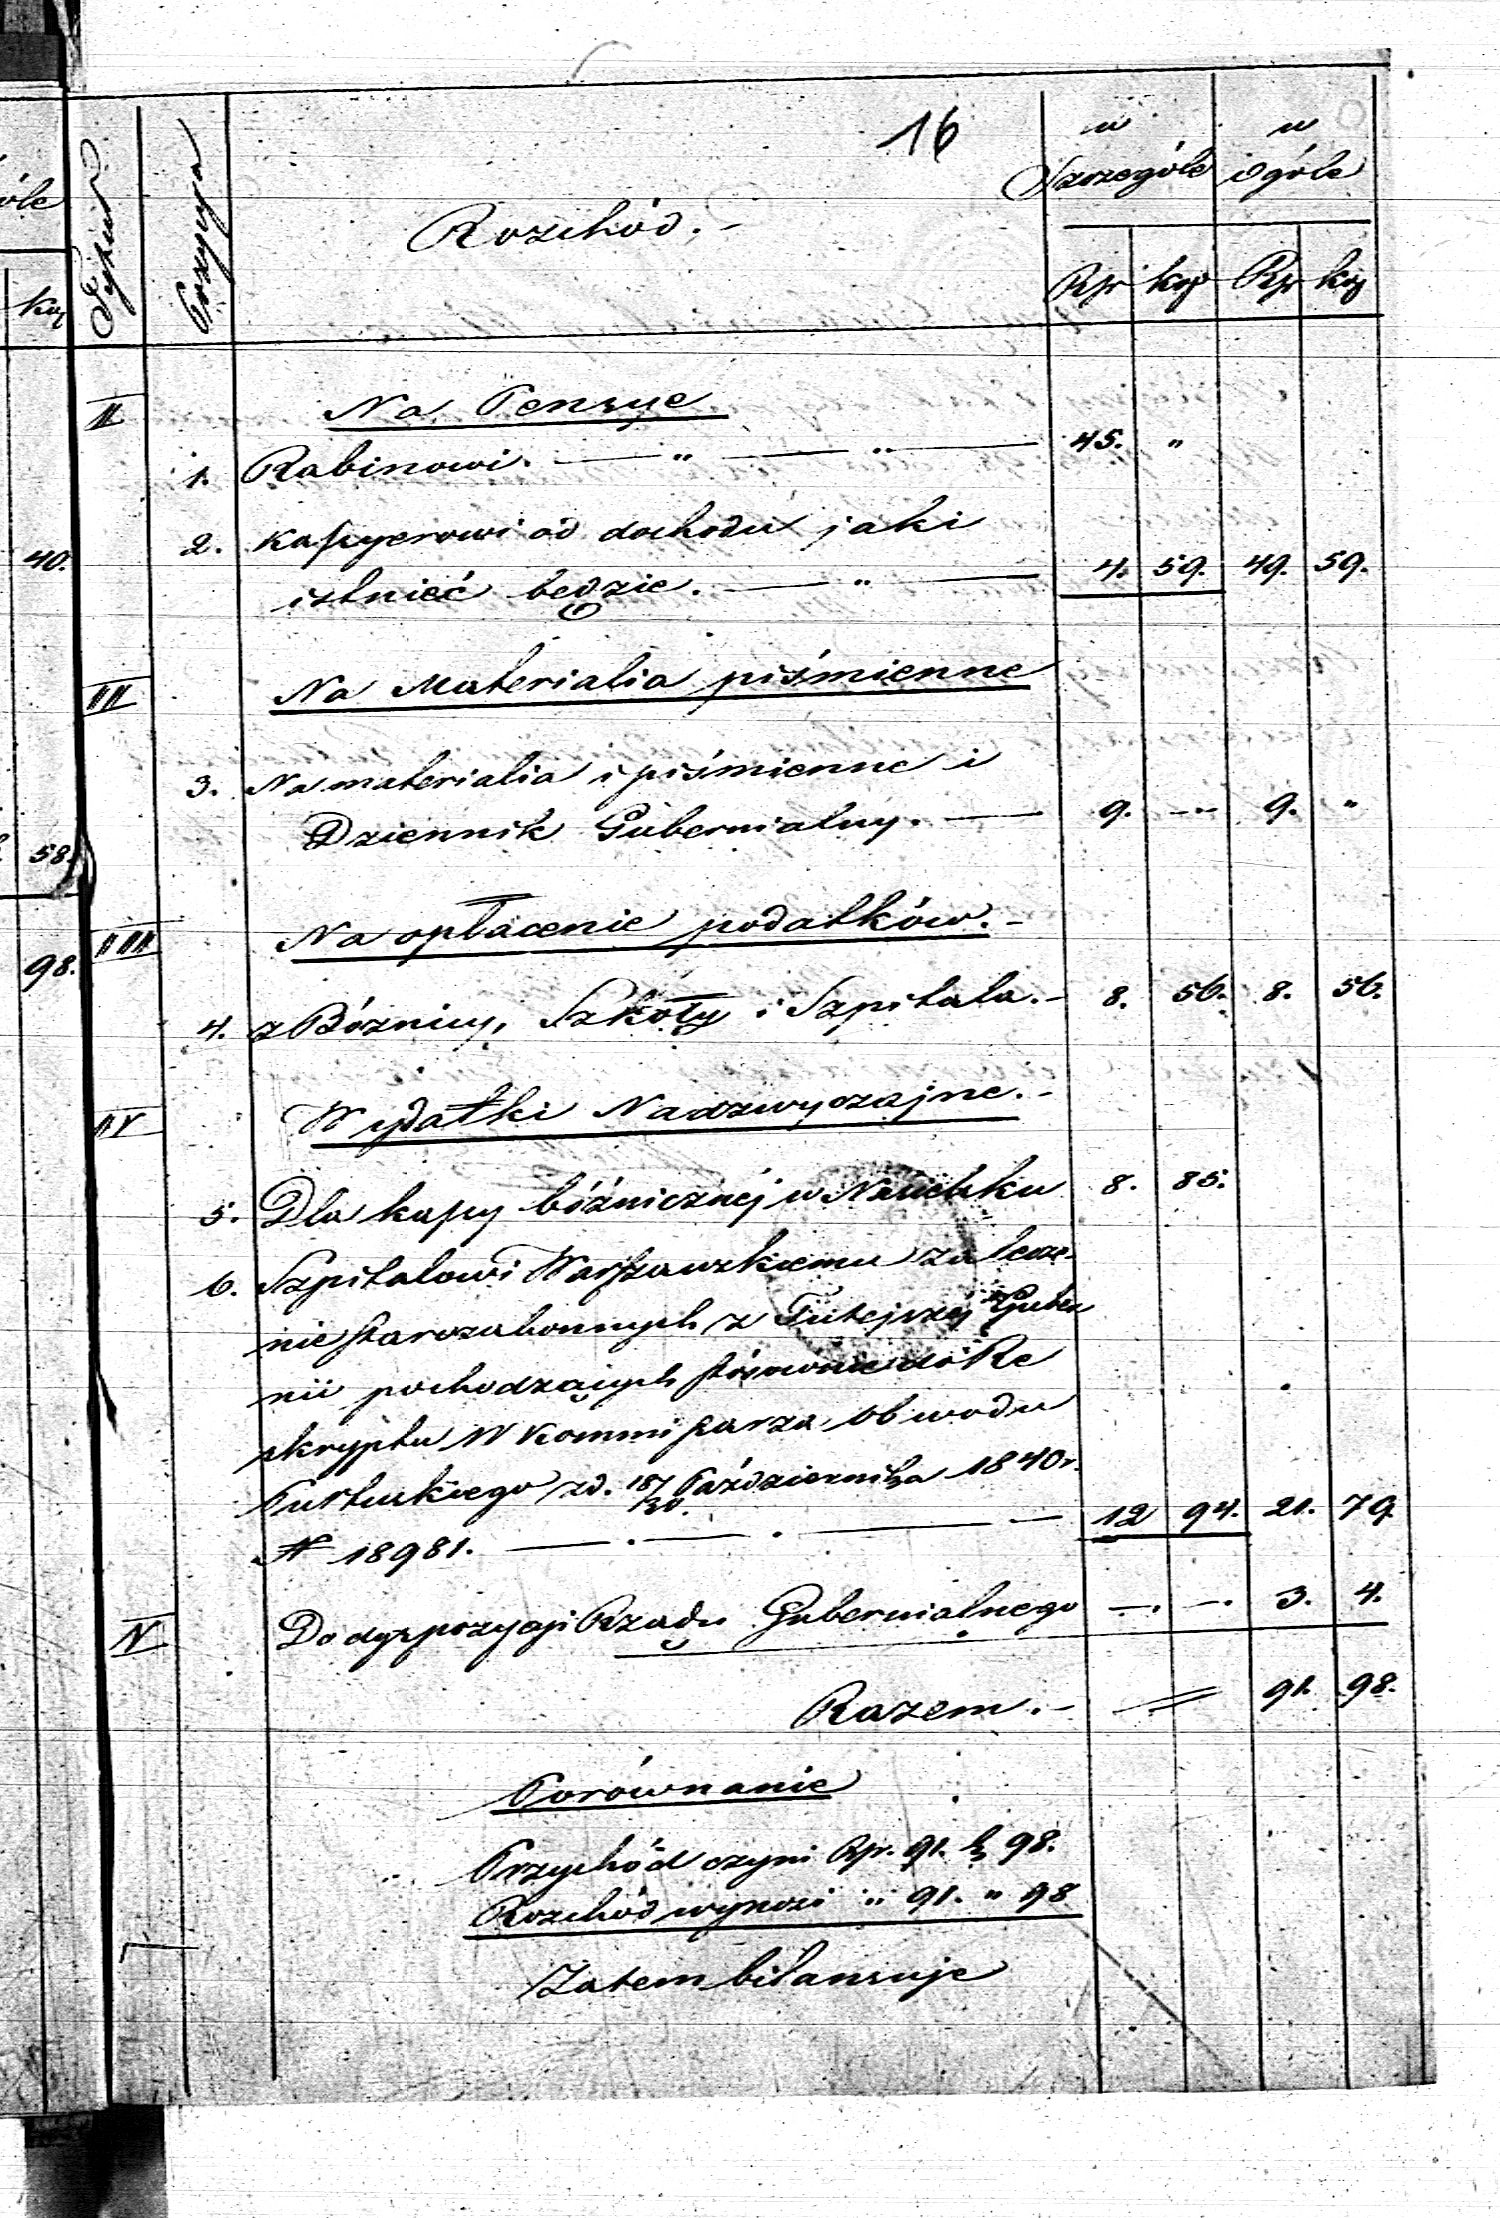 16
óle
kop
40.
58.
98.
Tytuł
Pozycya
Rozchód.-
w Szczególe
w ogóle
Rsr kop Rsr kop
II Na Pensye
1. Rabinowi. — " — " — 45. "
2. Kassyerowi od dochodu jaki
istnieć będzie. — " — 4. 59. 49. 59.
III Na Materialia piśmienne
3. Na materialia piśmienne i
Dziennik Gubernialny. — 9. — 9. "
IIII Na opłacenie podatków.-
4. z Bóznicy, Szkoły i Szpitala.- 8. 56. 8. 56.
IV Wydatki Nadzwyczajne.-
5. Dla kassy bóżnicznéj w Nasielsku 8. 85.
6. Szpitalowi Warszawskiemu za lecze-
nie starozakonnych z Tutejszéj Guber
nii pochodzących stósownie do Re
skryptu W Kommissarza Obwodu
Pułtuskiego z d. 18/30 Października 1840 r.
N 18981. — . — . — 12 94. 21. 79.
V Do dyspozycyi Rządu Gubernialnego —. —. 3. 4.
Razem.- = 91. 98.
Porównanie
Przychód czyni Rsr. 91. k 98.
Rozchód wynosi " 91. " 98
Zatem bilansuje